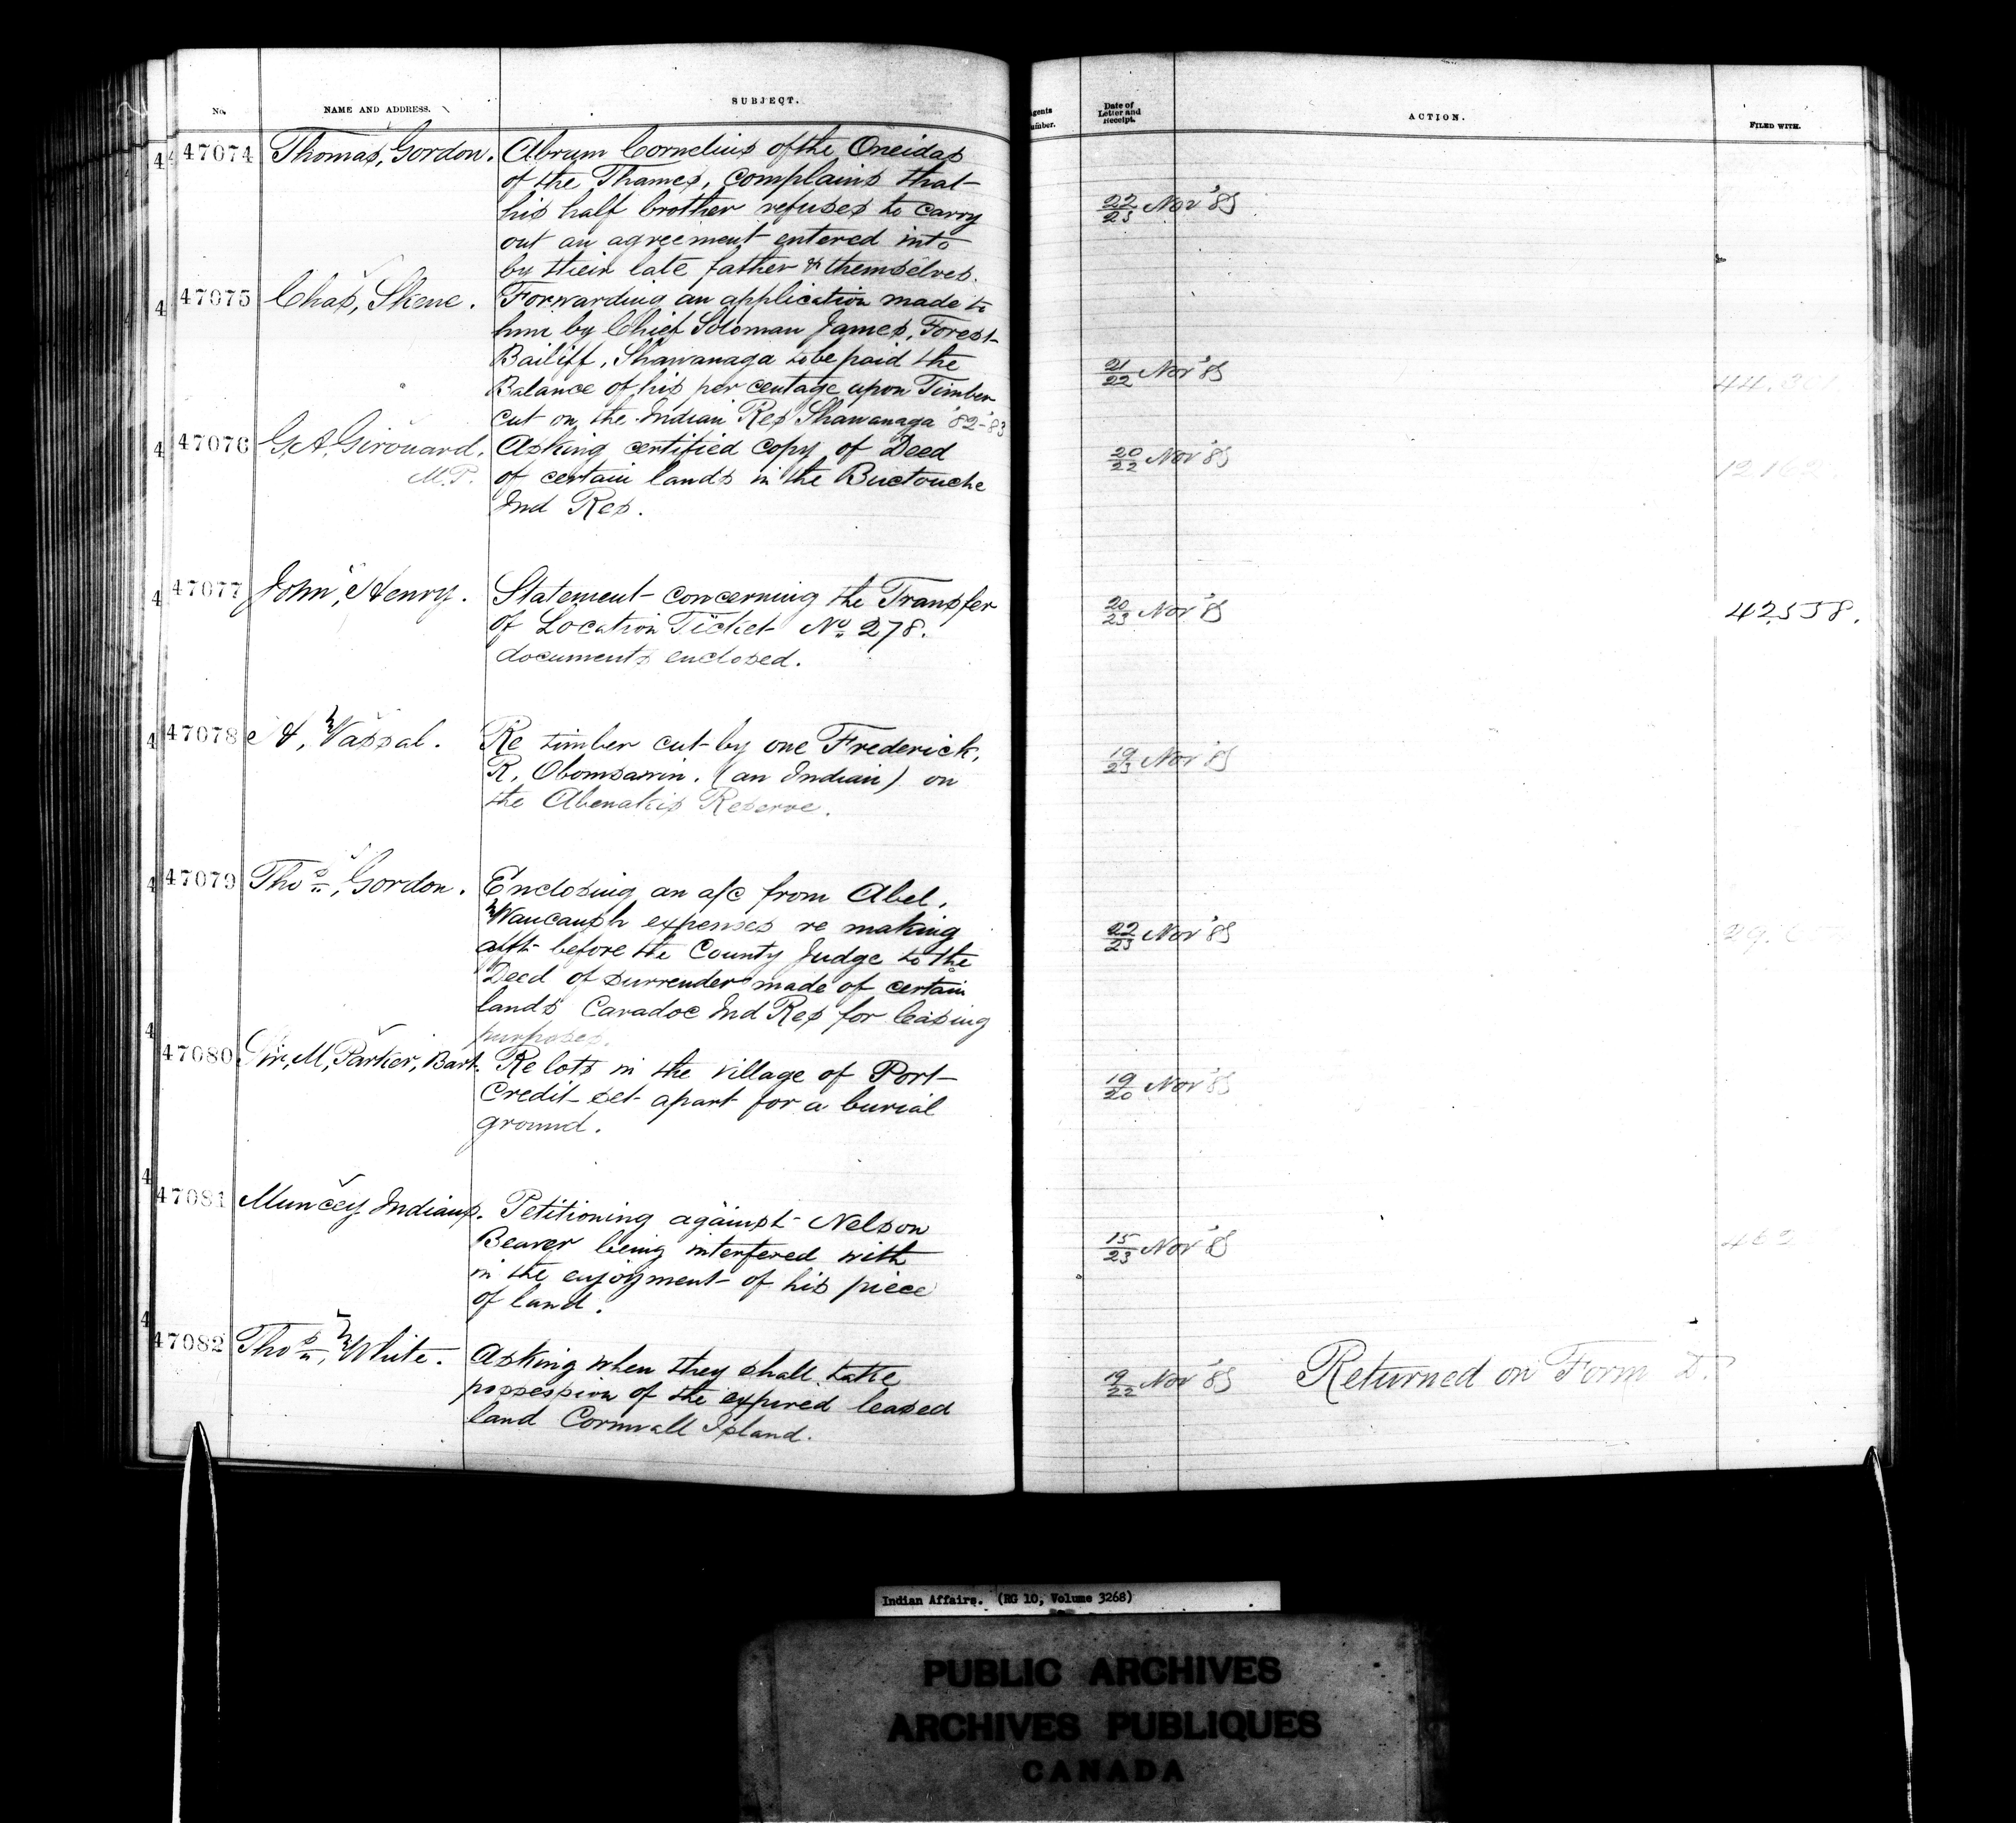 No. NAME AND ADDRESS. SUBJECT.
47074 Thomas, Gordon. Abrum Cornelius of the Oneidas
of the Thames, complains that
his half brother refuses to carry
out an agreement entered into
by their late father & themselves.
47075 Chas, Skene. Forwarding an application made to
him by Chief Soloman James, Forest
Bailiff, Shawanaga to be paid the
Balance of his per centage upon Timber
cut on the Indian Res Shawanaga '82-'83
47076 G.A. Girouard. Asking certified copy of Deed
M.P. of certain lands in the Buctouche
Ind Res.
47077 John, Henry. Statement concerning the Transfer
of Location Ticket No 278.
documents enclosed.
47078 H, Vassal. Re timber cut by one Frederick,
R, Obomsawin. (an Indian) on
the Abenakis Reserve.
47079 Thos, Gordon. Enclosing an a/c from Abel,
Waucaush expenses re making
afft before the County Judge to the
Deed of surrender made of certain
lands Caradoc Ind Res for leasing
purposes.
47080 M, Parker, Bart. Re lots in the village of Port
Credit set apart for a burial
ground.
47081 Muncey Indians. Petitioning against Nelson
Beaver being interfered with
in the enjoyment of his piece
of land.
47082 Thos, White. Asking when they shall take
possession of the expired leased
land Cornwall Island.
Date of
Letter and
Receipt.
ACTION. FILED WITH.
22/23 Nov '85
21/22 Nov '85
20/22 Nov '85
20/23 Nov '85 42558.
19/23 Nov '85
22/23 Nov '85
19/20 Nov '85
15/23 Nov '85
19/22 Nov '85 Returned on Form D.
Indian Affairs. (RG 10, Volume 3268)
PUBLIC ARCHIVES
ARCHIVES PUBLIQUES
CANADA